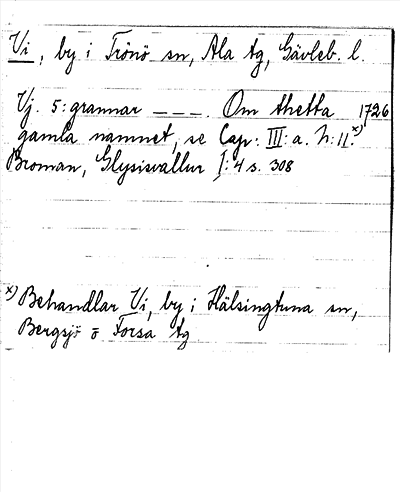 Vi, by i Trönö sn, Ala tg, Gävleb. l.
Vj. 5: grannar _ _ _. Om thetta 1726
gamla namnet, se Cap: III: a. h: 11. x)
Broman, Glysisvallur I: 4 s. 308
x) Behandlar Vi, by i Hälsingtuna sn,
Bergsjö o Forsa tg